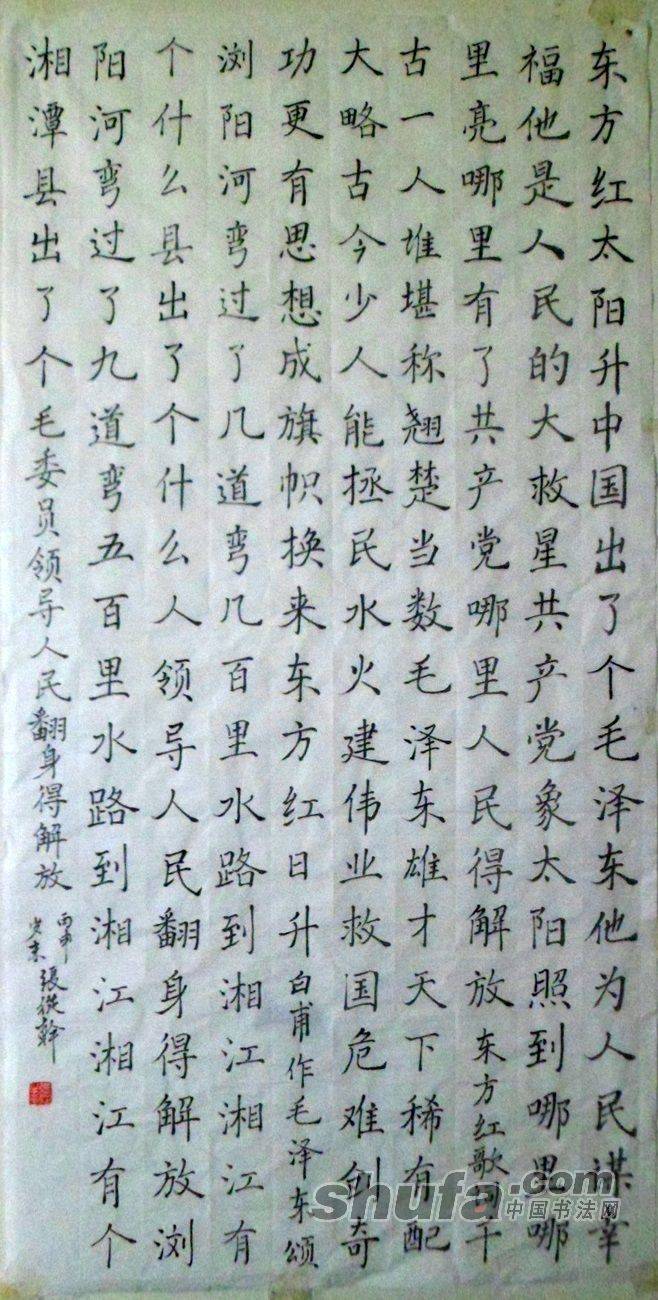 东方红太阳升中国出了个毛泽东他为人民谋幸
福他是人民的大救星共产党象太阳照到哪里哪
里亮哪里有了共产党哪里人民得解放东方红歌词千
古一人堆堪称翘楚当数毛泽东雄才天下稀有配
大略古今少人能拯民水火建伟业救国危难创奇
功更有思想成旗帜换来东方红日升白甫作毛泽东颂
浏阳河弯过了几道弯几百里水路到湘江湘江有
个什么县出了个什么人领导人民翻身得解放浏
阳河弯过了九道弯五百里水路到湘江湘江有个
湘潭县出了个毛委员领导人民翻身得解放
丙申
岁末張從幹
shufa.com
中国书法网